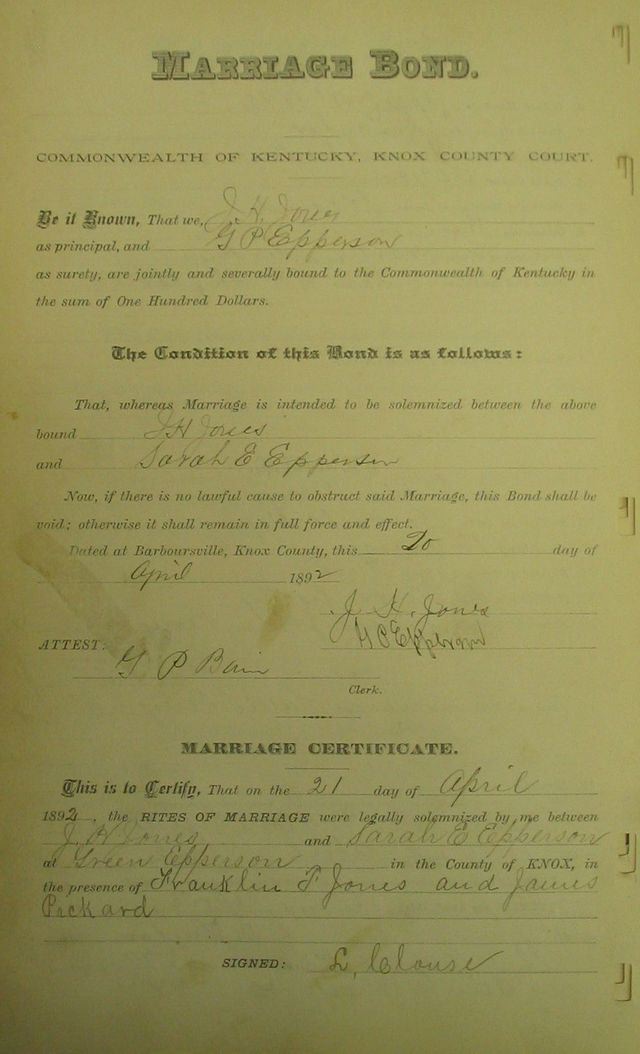 MARRIAGE BOND.
COMMONWEALTH OF KENTUCKY, KNOX COUNTY COURT.
Be it Known, That we, J. H. Jones
as principal, and G P Epperson
as surety, are jointly and severally bound to the Commonwealth of Kentucky in
the sum of One Hundred Dollars.
The Condition of this Bond is as follows:
That, whereas Marriage is intended to be solemnized between the above
bound J H Jones
and Sarah E Epperson
Now, if there is no lawful cause to obstruct said Marriage, this Bond shall be
void; otherwise it shall remain in full force and effect.
Dated at Barboursville, Knox County, this 20 day of
April 1892
J. H. Jones
Epperson
ATTEST:
G P Bain
Clerk.
MARRIAGE CERTIFICATE.
This is to Certify, That on the 21 day of April
1892, the RITES OF MARRIAGE were legally solemnized by me between
J. H Jones and Sarah E Epperson
at Green Epperson in the County of KNOX, in
the presence of Franklin F Jones and James
Pickard
SIGNED: L, Clouse